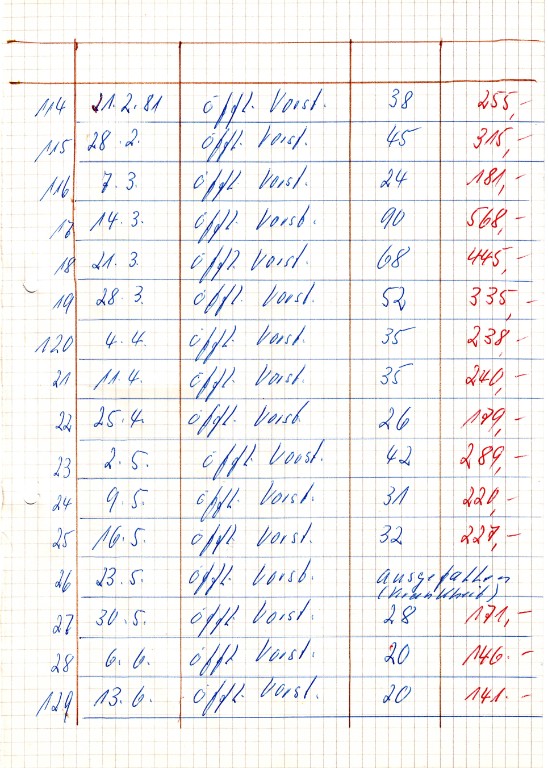 114 21.2.81 öffl. Vorst. 38 255,-
115 28.2. öffl. Vorst. 45 315,-
116 7.3. öffl. Vorst. 24 181,-
17 14.3. öffl. Vorst. 90 568,-
18 21.3. öffl. Vorst. 68 445,-
19 28.3. öffl. Vorst. 52 335,-
120 4.4. öffl. Vorst. 35 238,-
21 11.4. öffl. Vorst. 35 240,-
22 25.4. öffl. Vorst. 26 179,-
23 2.5. öffl. Vorst. 42 289,-
24 9.5. öffl. Vorst. 31 220,-
25 16.5. öffl. Vorst. 32 227,-
26 23.5. öffl. Vorst. ausgefallen
(Krankheit)
27 30.5. öffl. Vorst. 28 171,-
28 6.6. öffl. Vorst. 20 146.-
129 13.6. öffl. Vorst. 20 141.-